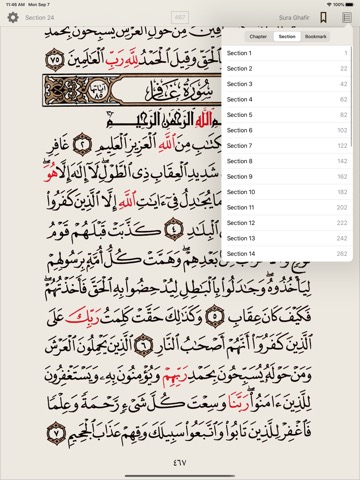 11:46 AM Mon Sep 7
Section 24
467
Sura Ghafir
Chapter
Section
Bookmark
Section 1 1
Section 2 22
Section 3 42
Section 4 62
Section 5 82
Section 6 102
Section 7 122
Section 8 142
Section 9 162
Section 10 182
Section 11 202
Section 12 222
Section 13 242
Section 14 262
يُسَبِّحُونَ بِحَمْدِ
وَقِيلَ ٱلْحَمْدُ لِلَّهِ رَبِّ ٱلْعَٰلَمِينَ ٧٥
سُورَةُ غَافِرٍ
ٱللَّهِ ٱلرَّحْمَٰنِ ٱلرَّحِيمِ
مِنَ ٱللَّهِ ٱلْعَزِيزِ ٱلْعَلِيمِ ٢ غَافِرِ
شَدِيدِ ٱلْعِقَابِ ذِى ٱلطَّوْلِ لَآ إِلَٰهَ إِلَّا هُوَ
مَا يُجَٰدِلُ فِىٓ ءَايَٰتِ ٱللَّهِ إِلَّا ٱلَّذِينَ كَفَرُوا۟
ٱلْبِلَٰدِ ٤ كَذَّبَتْ قَبْلَهُمْ قَوْمُ
بَعْدِهِمْ وَهَمَّتْ كُلُّ أُمَّةٍۭ بِرَسُولِهِمْ
لِيَأْخُذُوهُ وَجَٰدَلُوا۟ بِٱلْبَٰطِلِ لِيُدْحِضُوا۟ بِهِ ٱلْحَقَّ فَأَخَذْتُهُمْ
فَكَيْفَ كَانَ عِقَابِ ٥ وَكَذَٰلِكَ حَقَّتْ كَلِمَتُ رَبِّكَ عَلَى
ٱلَّذِينَ كَفَرُوٓا۟ أَنَّهُمْ أَصْحَٰبُ ٱلنَّارِ ٦ ٱلَّذِينَ يَحْمِلُونَ ٱلْعَرْشَ
وَمَنْ حَوْلَهُۥ يُسَبِّحُونَ بِحَمْدِ رَبِّهِمْ وَيُؤْمِنُونَ بِهِۦ وَيَسْتَغْفِرُونَ
لِلَّذِينَ ءَامَنُوا۟ رَبَّنَا وَسِعْتَ كُلَّ شَىْءٍ رَّحْمَةً وَعِلْمًا
فَٱغْفِرْ لِلَّذِينَ تَابُوا۟ وَٱتَّبَعُوا۟ سَبِيلَكَ وَقِهِمْ عَذَابَ ٱلْجَحِيمِ ٧
٤٦٧